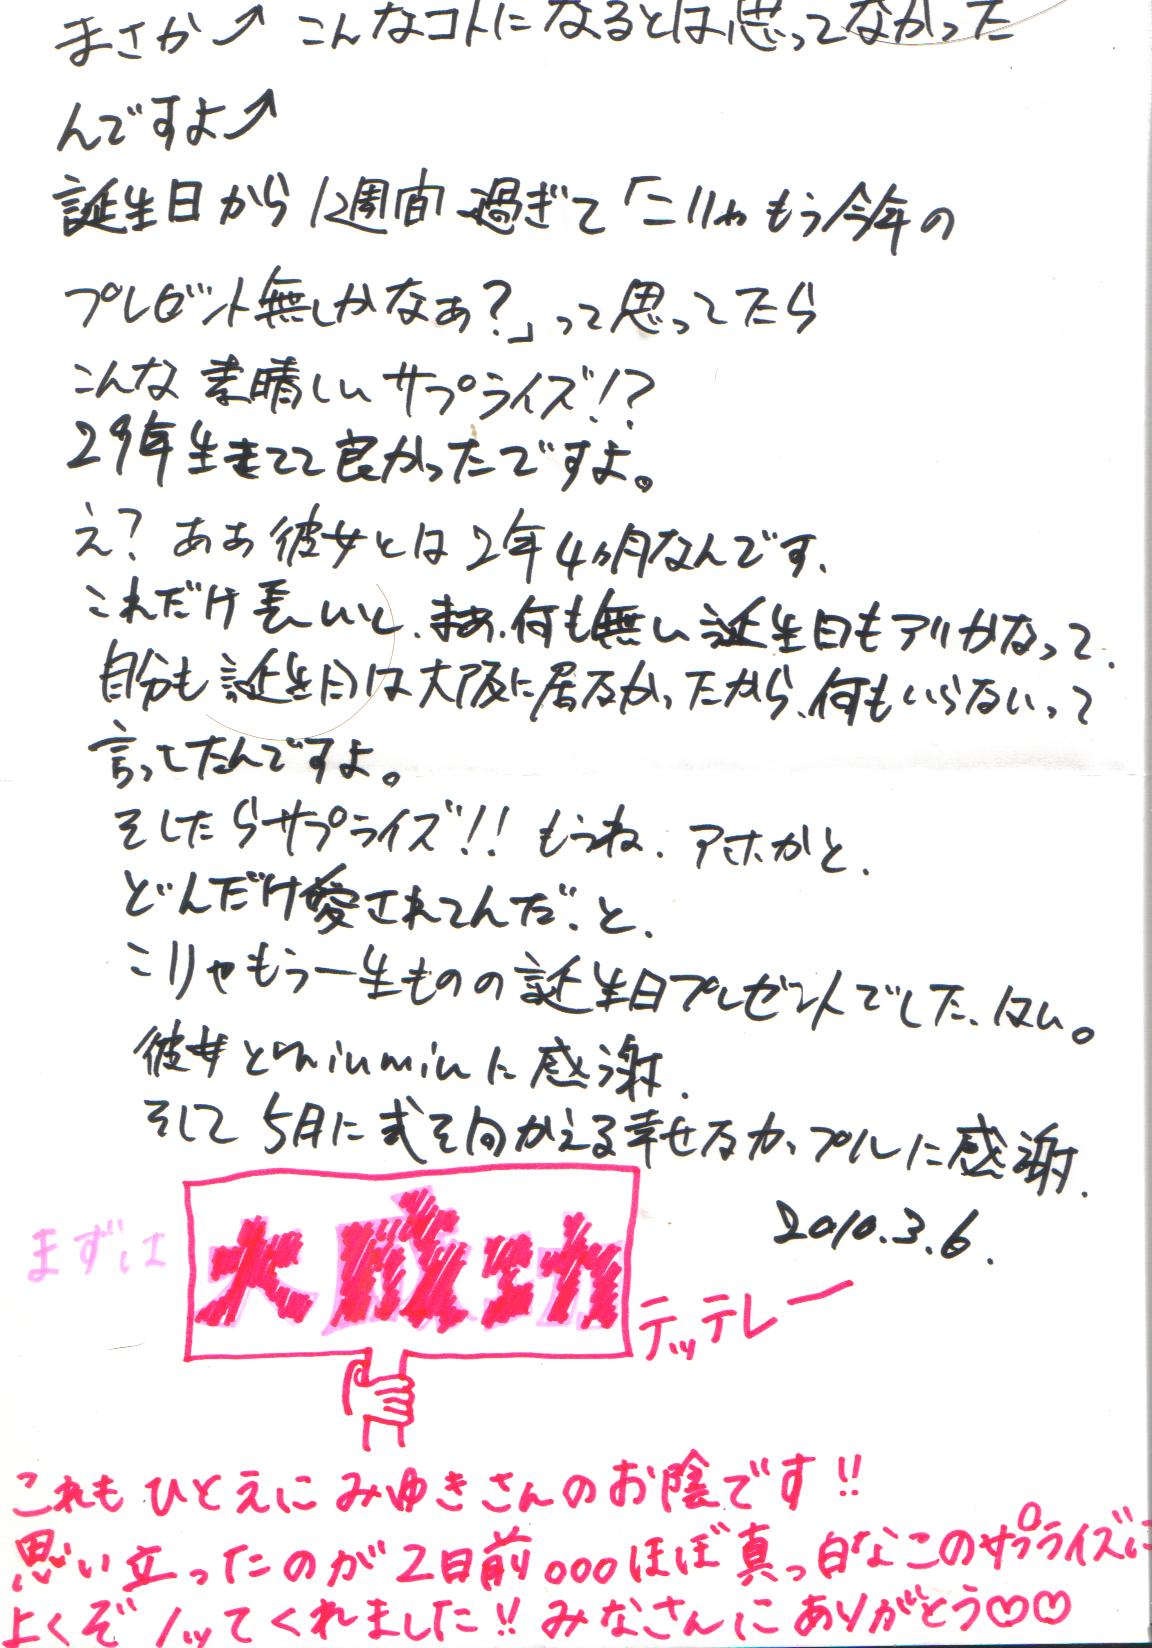 まさか↗ こんなコトになるとは思ってなかった
んですよ↗
誕生日から1週間過ぎて「こりゃもう今年の
プレゼント無しかなぁ?」って思ってたら
こんな素晴しいサプライズ!?
29年生きてて良かったですよ。
え?ああ彼女とは2年4ヵ月なんです、
これだけ長いと、まあ、何も無い誕生日もアリかなって、
自分も誕生日は大阪に居なかったから、何もいらないって
言ってたんですよ。
そしたらサプライズ!!もうね、アホかと、
どんだけ愛されてんだ、と、
こりゃもう一生ものの誕生日プレゼントでした、はい。
彼女とmiumiuに感謝、
そして5月に式を向かえる幸せなカップルに感謝、
2010.3.6.
まずは
大成功
テッテレー
これもひとえにみゆきさんのお陰です!!
思い立ったのが2日前。。。ほぼ真っ白なこのサプライズに
よくぞノッてくれました!!みなさんにありがとう♡♡